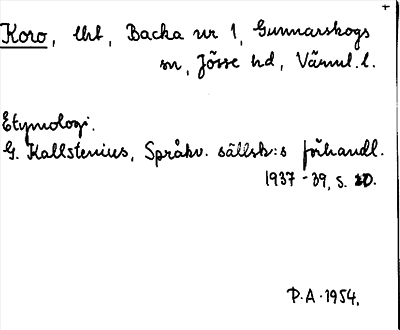 +
Koro, lht, Backa nr 1, Gunnarskogs
sn, Jösse hd, Värml. l.
Etymologi.
G. Kallstenius, Språkv. sällsk:s förhandl.
1937-39, s. 20.
P.A. 1954.